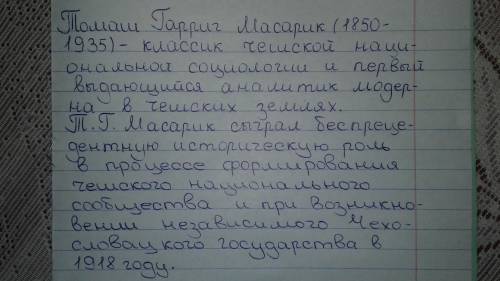 Томаш Гарриг Масарик (1850-
1935) - классик чешской наци-
ональной социологии и первый
выдающийся аналитик модер-
на в чешских землях.
Т. Г. Масарик сыграл беспреце-
дентную историческую роль
в процессе формирования
чешского национального
сообщества и при возникно-
вении независимого Чехо-
словацкого государства в
1918 году.